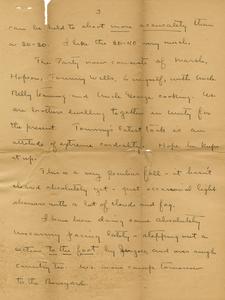 3
can be held to about more accurately than
a 30-30. I like the 30-40 very much.
The Party now consists of Marsh,
Hopson, Tommy Wells, & myself, with Uncle
Billy and Uncle George cooking. We
are brothers dwelling together in unity for
the present. Tommy's latest tack is an
attitude of extreme cordiality. Hope he keeps
it up.
This is a very peculiar fall - it hasn't
stormed absolutely yet - just occasional light
showers with a lot of clouds and fog.
I have been doing some absolutely
wearing pacing lately - stepping out a
section to the foot by and over rough
country too. We move camp tomorrow
to the